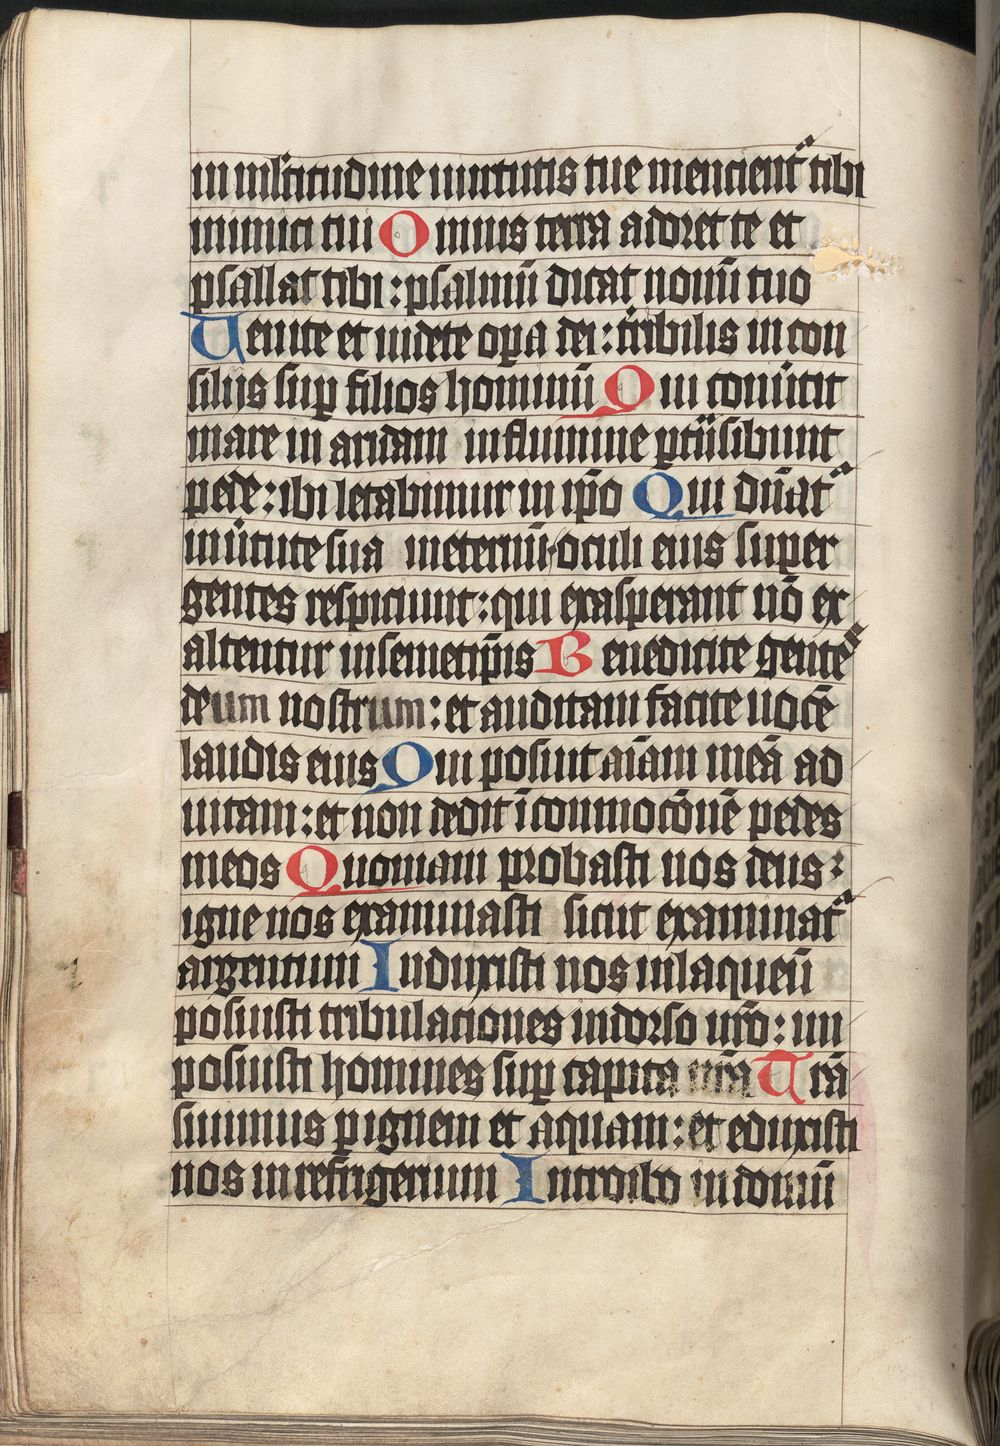 in ml̄titudine uirtutis tue mencient᷑ tibi
inimici tui Omnis terra adoret te et
psallat tibi : psalmū dicat nomī tuo
Uenite et uidete oꝑa dei : t̄ribilis in con
silijs suꝑ filios hominū Qui conũtit
mare in aridam in flumine ꝑt̄nsibunt
pede : ibi letabimur in ip̄o Qui dn̄at᷑
in ũtute sua in eternū oculi eius super
gentes respiciunt : qui exasperant nō ex
altentur in semetip̄is Benedicite gente᷑
deum nostrum : et auditam facite uocē
laudis eius Qui posuit aīam meā ad
uitam : et non dedit ī conmotōnē pedes
meos Quoniam probasti nos deus :
igne nos examinasti sicut examinat᷑
argentum Induxisti nos in laqueū
posuisti tribulaciones in dorso nr̄o : im
posuisti homines suꝑ capita nr̄a Trā
siuimus ꝑ ignem et aquam : et eduxisti
nos in refrigerium Introibo in domū